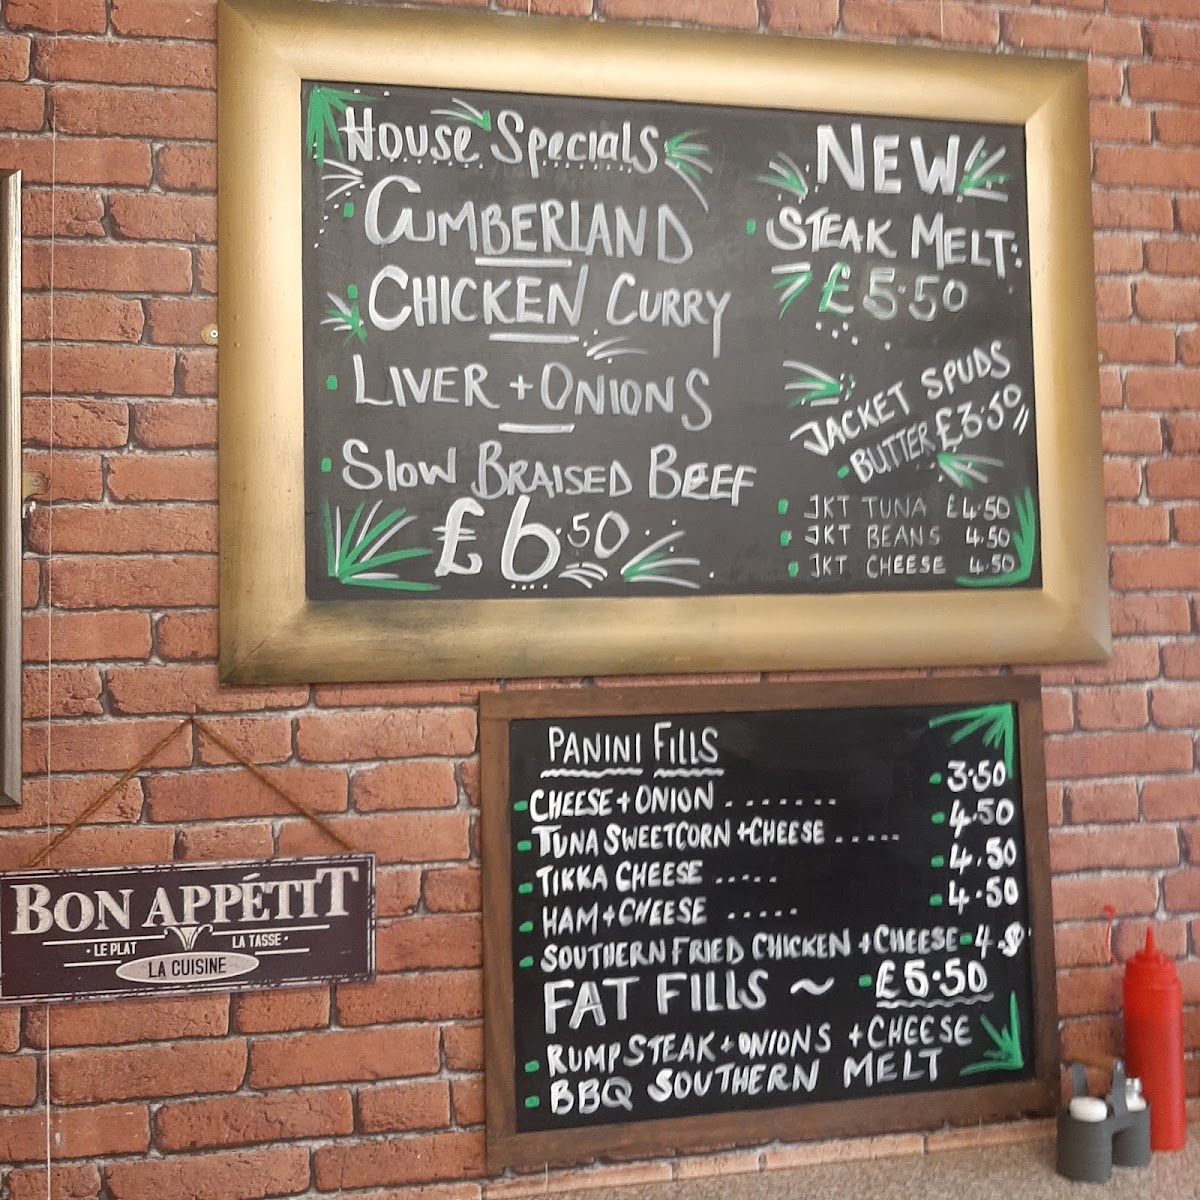 House Specials
CUMBERLAND
CHICKEN CURRY
LIVER + ONIONS
Slow BRAISED BEEF
£6.50
NEW
STEAK MELT:
£5.50
JACKET SPUDS
BUTTER £3.50
JKT TUNA £4.50
JKT BEANS 4.50
JKT CHEESE 4.50
PANINI FILLS
CHEESE + ONION ....... 3.50
TUNA SWEETCORN + CHEESE ..... 4.50
TIKKA CHEESE ..... 4.50
HAM + CHEESE ..... 4.50
SOUTHERN FRIED CHICKEN + CHEESE - 4.50
FAT FILLS ~ £5.50
RUMP STEAK + ONIONS + CHEESE
BBQ SOUTHERN MELT
BON APPÉTIT
· LE PLAT LA TASSE ·
LA CUISINE